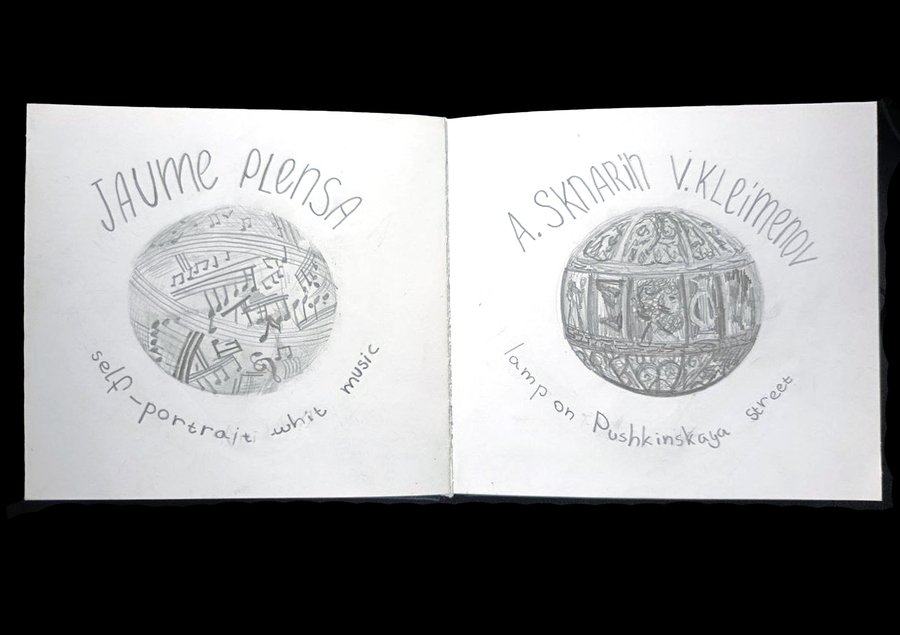 JAUME PLENSA
self-portrait whit music
A. SKNARIN V. KLEIMENOV
lamp on Pushkinskaya street